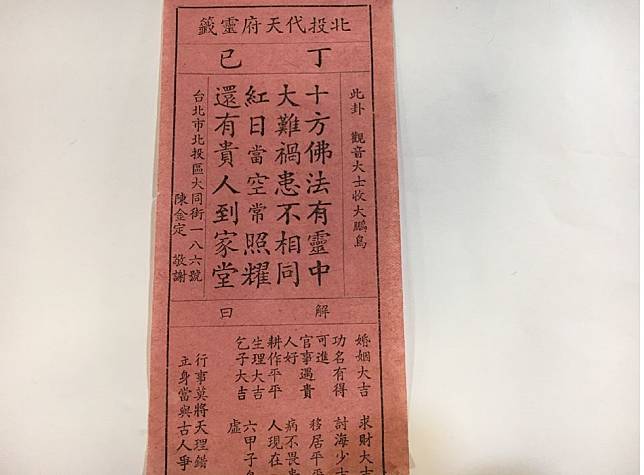 北投代天府靈籤
丁巳
此卦 觀音大士收大鵬鳥
十方佛法有靈中
大難禍患不相同
紅日當空常照耀
還有貴人到家堂
台北市北投區大同街一八六號
陳金定 敬謝
解曰
婚姻大吉 求財大吉
功名有得 討海少
可進 移居平
官事遇貴
人好 病不畏
耕作平平 人現在
生理大吉 六甲子
乞子大吉 虛
行事莫將天理錯
立身當與古人爭